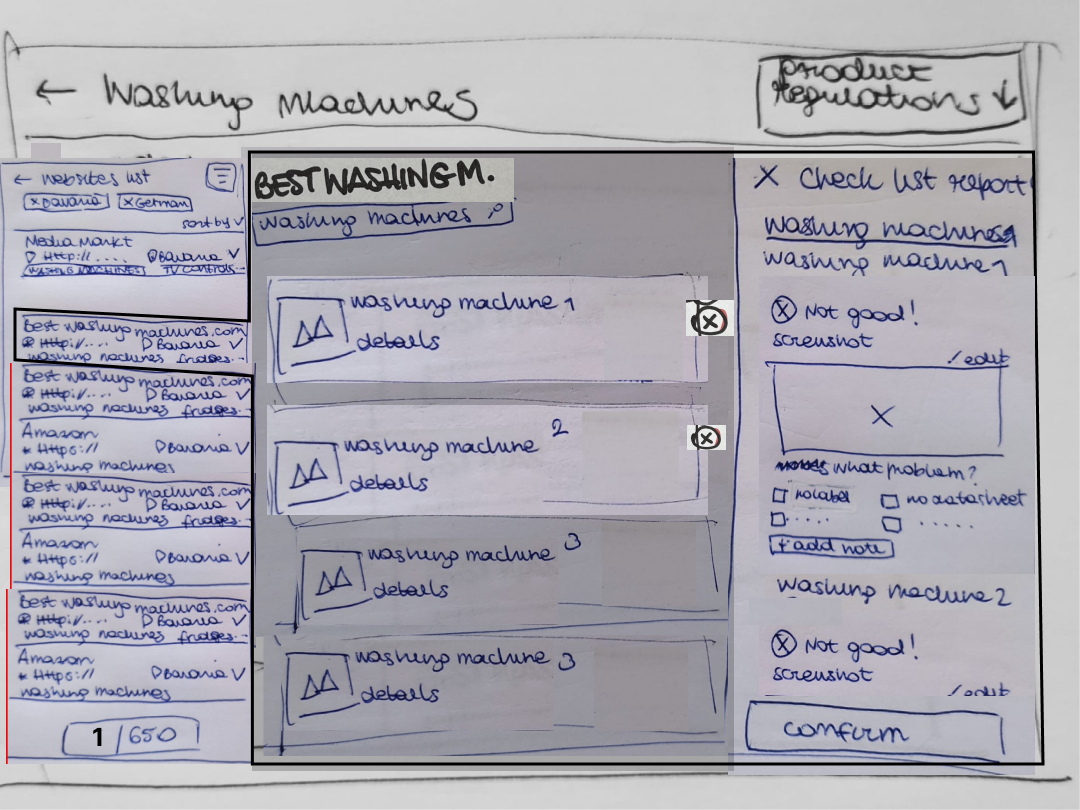 ← Washing Machines
product
regulations ↓
← Websites list
x Bavaria x German
sort by
Media Markt
Http://.... Bavaria
WASHING MACHINES TV CONTROLS...
Best washing machines.com
Http://.... Bavaria
washing machines fridges...
Best washing machines.com
Http://.... Bavaria
washing machines fridges...
Amazon
* Https:// Bavaria
washing machines
Best washing machines.com
Http://.... Bavaria
washing machines fridges...
Amazon
* Https:// Bavaria
washing machines
Best washing machines.com
Http://.... Bavaria
washing machines fridges...
Amazon
* Https:// Bavaria
washing machines
1 / 650
BEST WASHING M.
washing machines
washing machine 1
details
washing machine 2
details
washing machine 3
details
washing machine 3
details
X Check list report
washing machines
washing machine 1
Not good!
screenshot
edit
what problem?
no label no datasheet
..... .....
+ add note
washing machine 2
Not good!
screenshot
edit
confirm